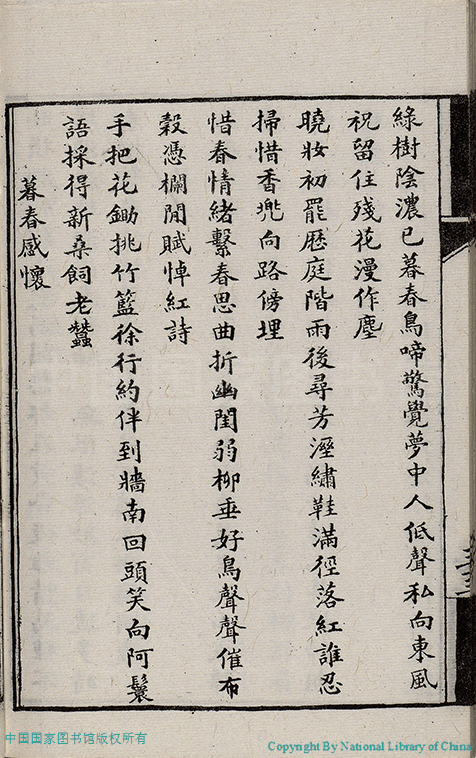 綠樹陰濃已暮春鳥啼驚覺夢中人低聲私向東風
祝留住殘花漫作塵
曉妝初罷歷庭階雨後尋芳溼繡鞋滿徑落紅誰忍
掃惜香兠向路傍埋
惜春情緒繫春思曲折幽閨弱柳垂好鳥聲聲催布
穀憑欄閒賦悼紅詩
手把花鋤挑竹籃徐行約伴到牆南回頭笑向阿鬟
語採得新桑飼老蠶
暮春感懷
中国国家图书馆版权所有
Copyright By National Library of China